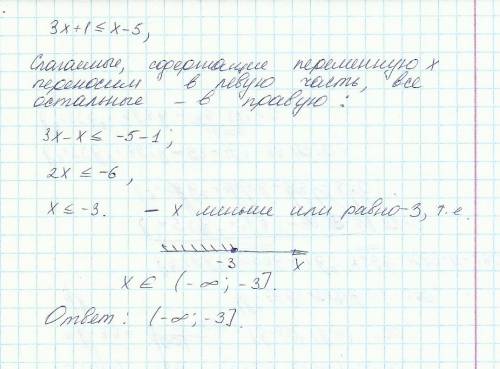 3x+1 ≤ x-5,
Слагаемые, содержащие переменную x
переносим в левую часть, все
остальные - в правую:
3x-x ≤ -5-1;
2x ≤ -6,
x ≤ -3. - x меньше или равно -3, т.е.
-3 x
x ∈ (-∞; -3].
Ответ: (-∞; -3].